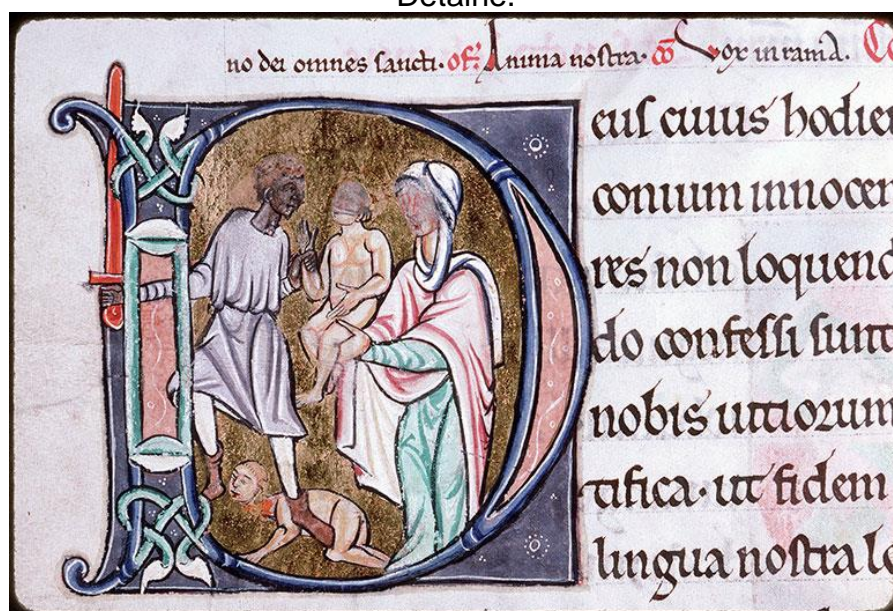 Detalhe.
no dei omnes sancti· of: Anima nostra· co Vox in rama. Co
Deus cuius hodie
conium innocen
res non loquend
do confessi sunt
nobis uitiorum
tifica· ut fidem
lingua nostra lo